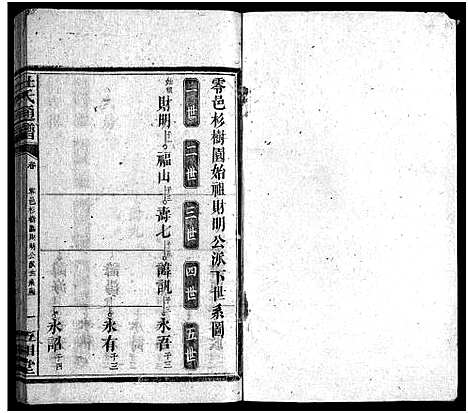 零邑杉樹園始祖財明公派下世系圖
一世 二世 三世 四世 五世
始祖 財明 子一 福山 子三 壽七 子三 諱訊 子三 永吾 子三
永有 子三
永詔 子四
杜氏通譜
卷 零邑杉樹園財明公派世系圖 一